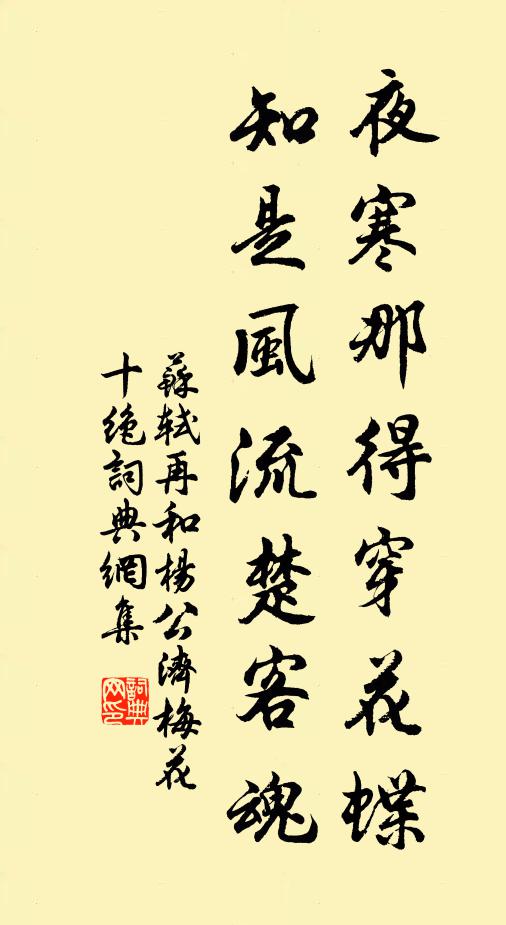 夜寒那得穿花蝶
知是風流楚客魂
蘇軾再和楊公濟梅花
十絶詞典網集
詞典
网印